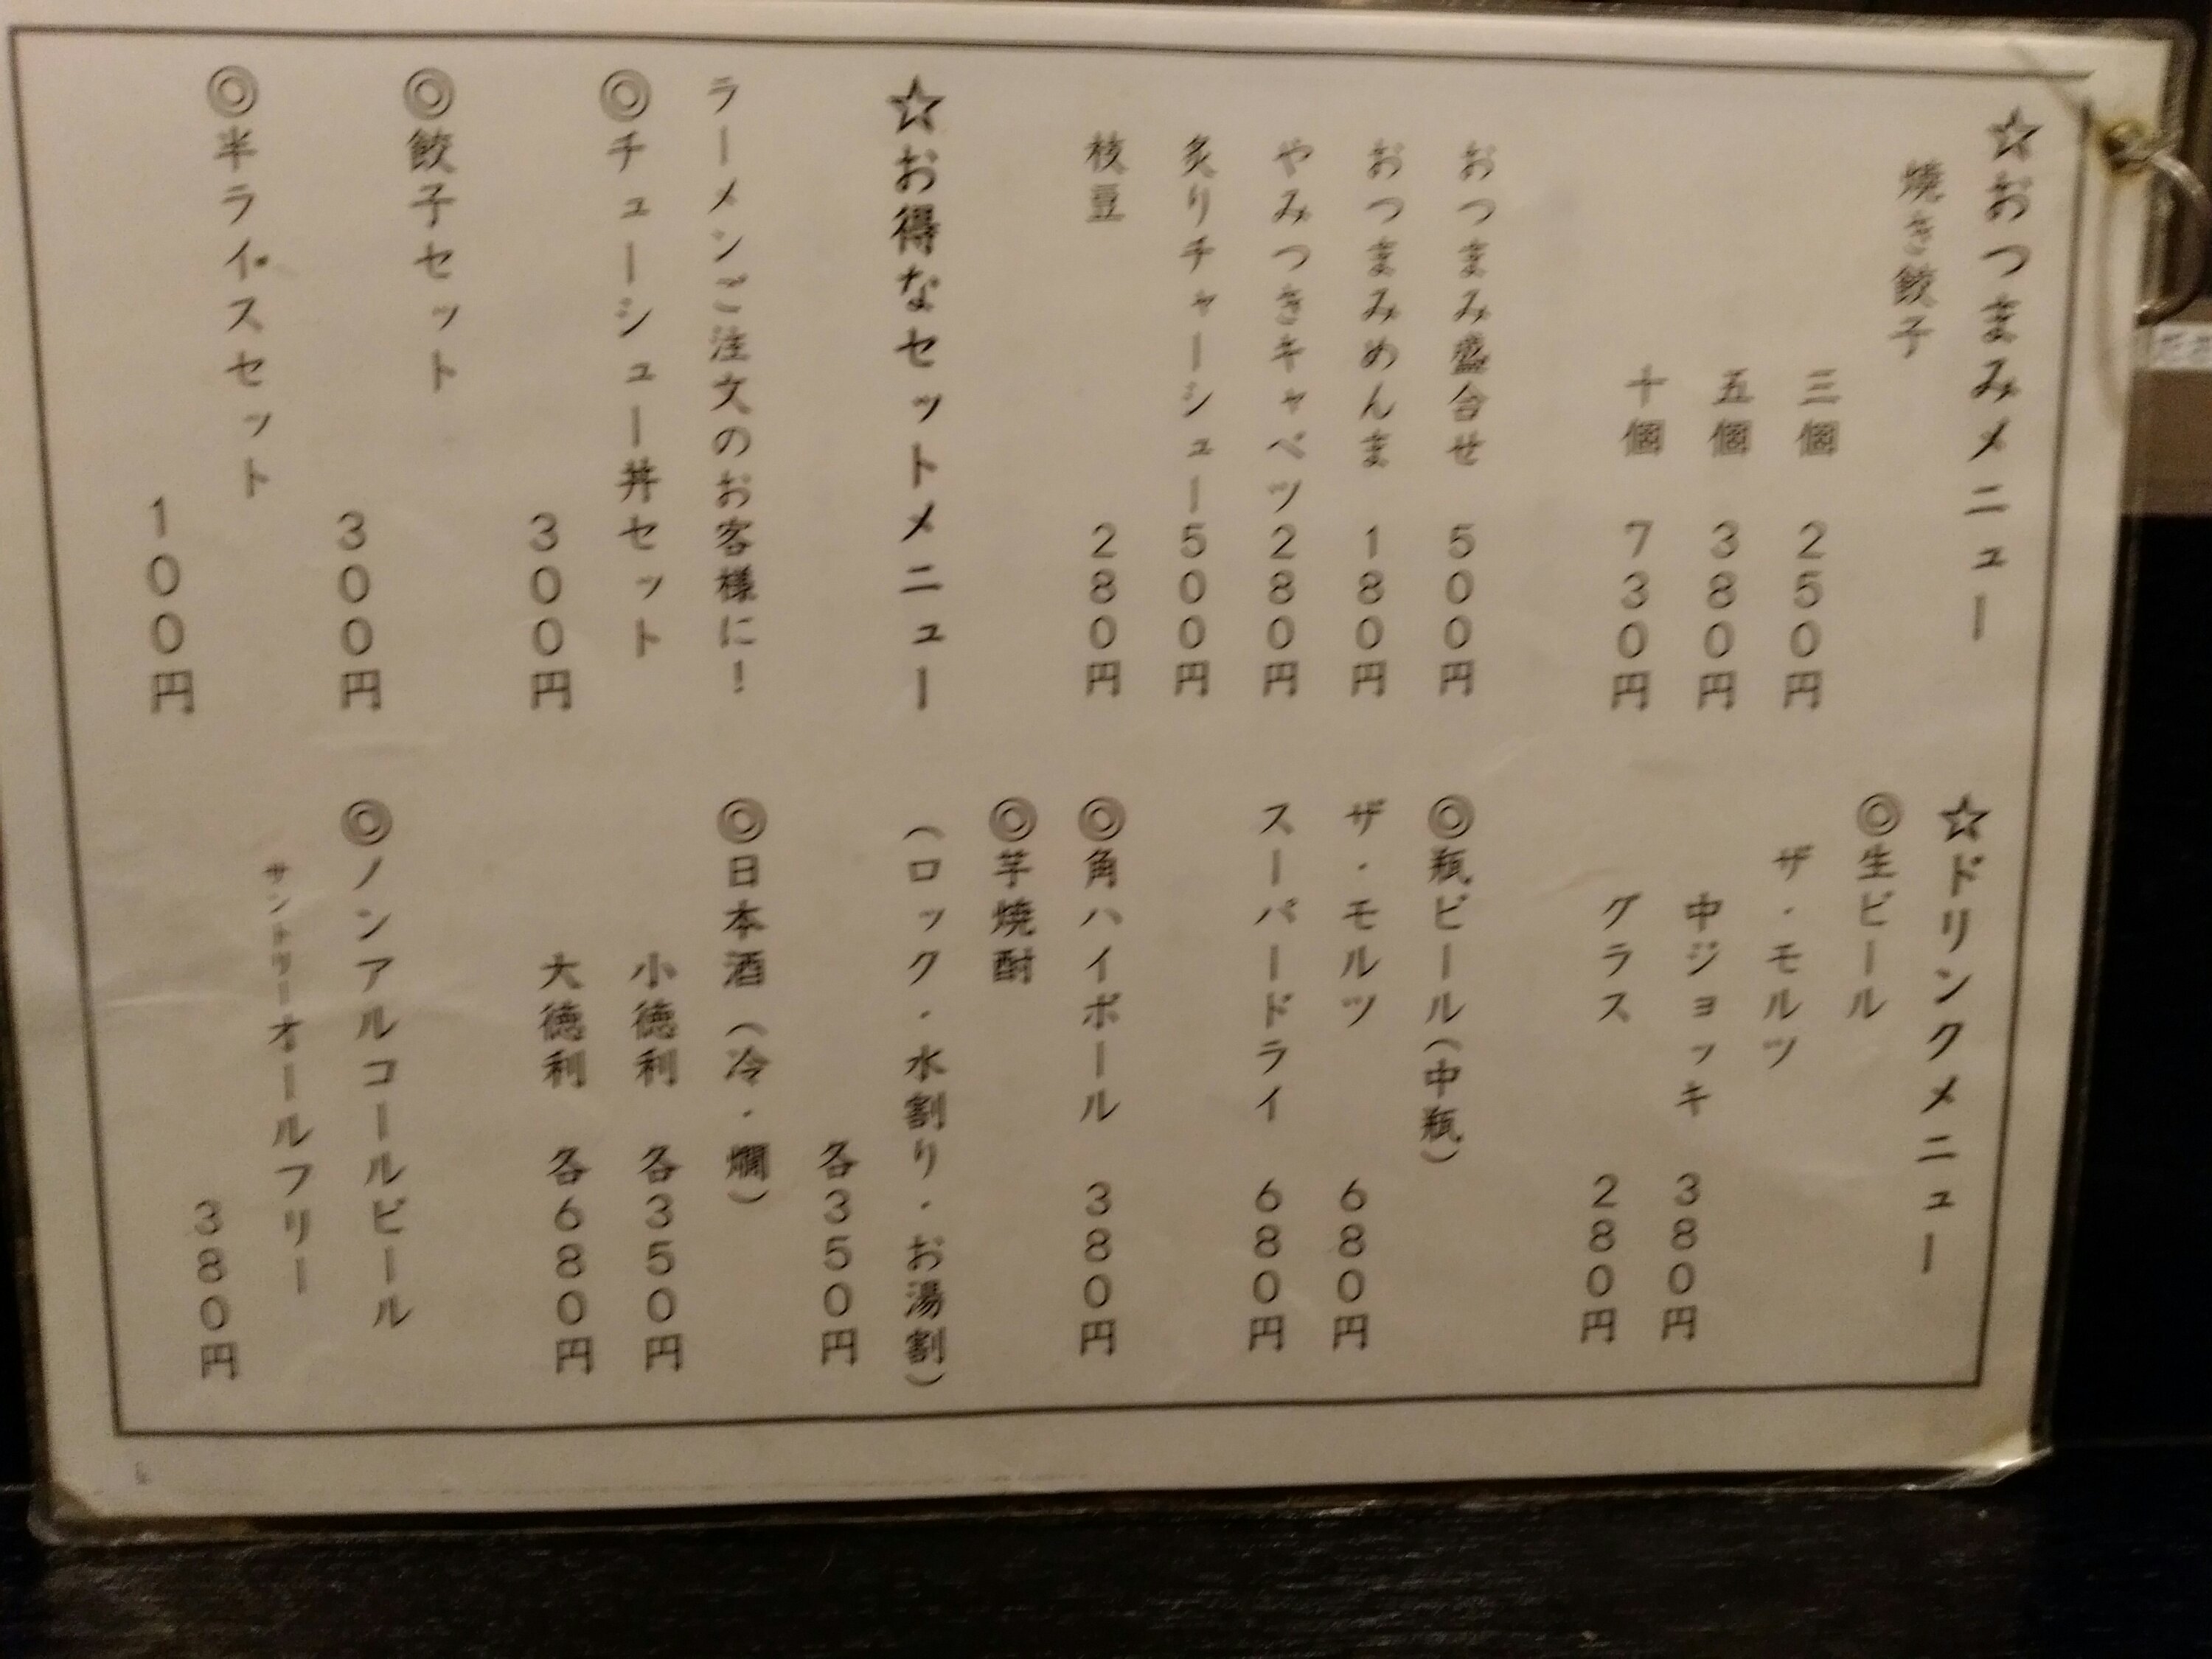 ☆おつまみメニュー
焼き餃子
三個 250円
五個 380円
十個 730円
おつまみ盛合せ 500円
おつまみめんま 180円
やみつきキャベツ 280円
炙りチャーシュー 500円
枝豆 280円
☆お得なセットメニュー
ラーメンご注文のお客様に!
◎チューシュー丼セット
300円
◎餃子セット
300円
◎半ライスセット
100円
☆ドリンクメニュー
◎生ビール
ザ・モルツ
中ジョッキ 380円
グラス 280円
◎瓶ビール(中瓶)
ザ・モルツ 680円
スーパードライ 680円
◎角ハイボール 380円
◎芋焼酎
(ロック・水割り・お湯割)
各350円
◎日本酒(冷・燗)
小徳利 各350円
大徳利 各680円
◎ノンアルコールビール
サントリーオールフリー
380円